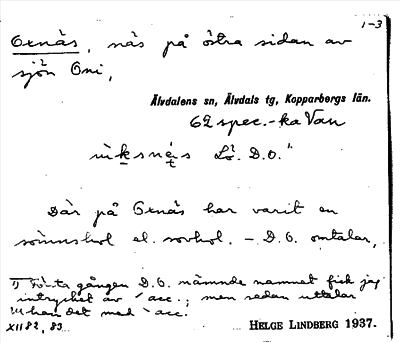 1-3
Oxnäs, näs på östra sidan av
sjön Oni,
Älvdalens sn, Älvdals tg, Kopparbergs län.
62 spec.-ka Van
D.O.
Där på Oxnäs har varit en
el. D.O. omtalar,
1) Första gången D.O. nämnde namnet fick jag
intrycket av ´acc.; men sedan uttalar
han det med `acc.
XII 82, 83.
HELGE LINDBERG 1937.